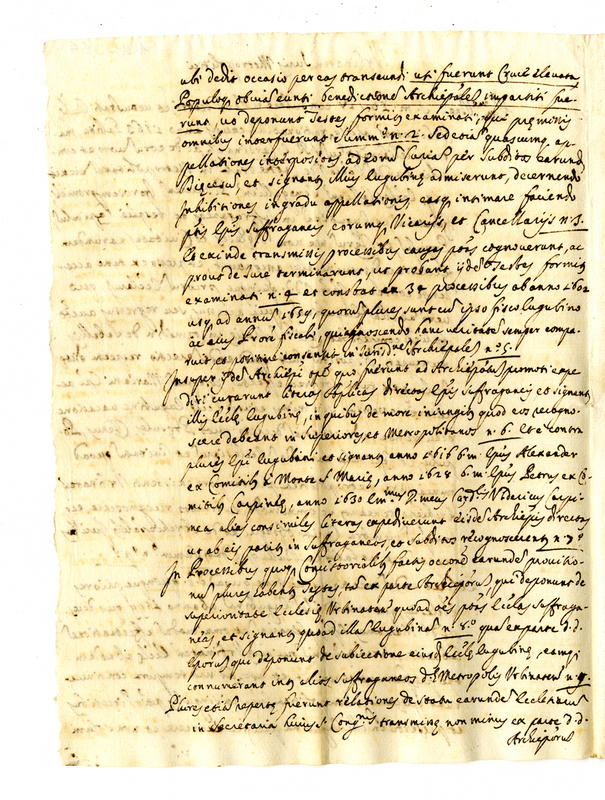 ubi dedit occasio per eas transeundi uti fuerunt Cruce elevata
Populoq obvia eunti benedictiones Archiepales impartiti fue-
runt, ut deponunt Testes formiter examinati, qui premissis
omnibus interfuerunt Summ.o n. 2. Sed etia quascumq ap-
pellationes interpositas ad eorum Curias per subditos earund
Diqcesu, et signant illius Eugubinę admiserunt, decernendo
Inhibitiones in gradu appellationis, easq intimare faciendo
ptis Epis suffraganeis eorumq Vicariis, et Cancellariis n. 3.
Et exinde transmissis processibus causas ptas cognoverunt, ac
prout de Jure terminarunt, ut probant ijdē Testes formiter
examinati n. 4. et constat ex 34 processibus ab anno 1602
usq ad annu 1659, quorum plures sunt cu ipso fisco Eugubino
ac eius Prore fiscali, qui agnoscendo hanc veritate semper compa-
ruit, et positive consensit in Jurisdne Archiepali n. 5.
Insuper ijdē Archiepi qui fuerunt ad Archiepatus promoti expe-
diri curarunt literas Aplicas directas Epis suffraganeis et signant
illi Ecclię Eugubinę, in quibus de more iniungitur quod eos recogno-
scere debeant in superiores, et Metropolitanos n. 6. Et e contra
plures Epi Eugubini et signant anno 1616 b. m. Epus Alexander
ex Comitibus de Monte S. Marię, anno 1628 b. m. Epus Petrus ex Co-
mitibus Carpineę, anno 1630 Em.mus D. meus Card.lis Uldericus Carpi-
neus alias consimiles literas expediverunt eisdē Archiepis directas
ut ab eis pariter in suffraganeos et subditos recognoscerentur n. 7.o
In Processibus quoq Consistorialibus factis occone earundē provisio-
nu plures habentur Testes, tā ex parte Archieporum qui deponunt de
superioritate Ecclesię Urbinaten quoad oēs ptas Ecclas suffraga-
neas, et signant quoad illā Eugubinā n. 8.o quā ex parte d.d.
Eporum qui deponunt de subiectione eiusd Ecclię Eugubinę, eamq
connumerant inter alias suffraganeas d. Metropolis Urbinaten n. 9.
Plures etia repertę fuerunt relationes de statu earundē Ecclesiarum
in Secretaria huius S. Cong.nis transmissę non minus ex parte d.d.
Archieporum